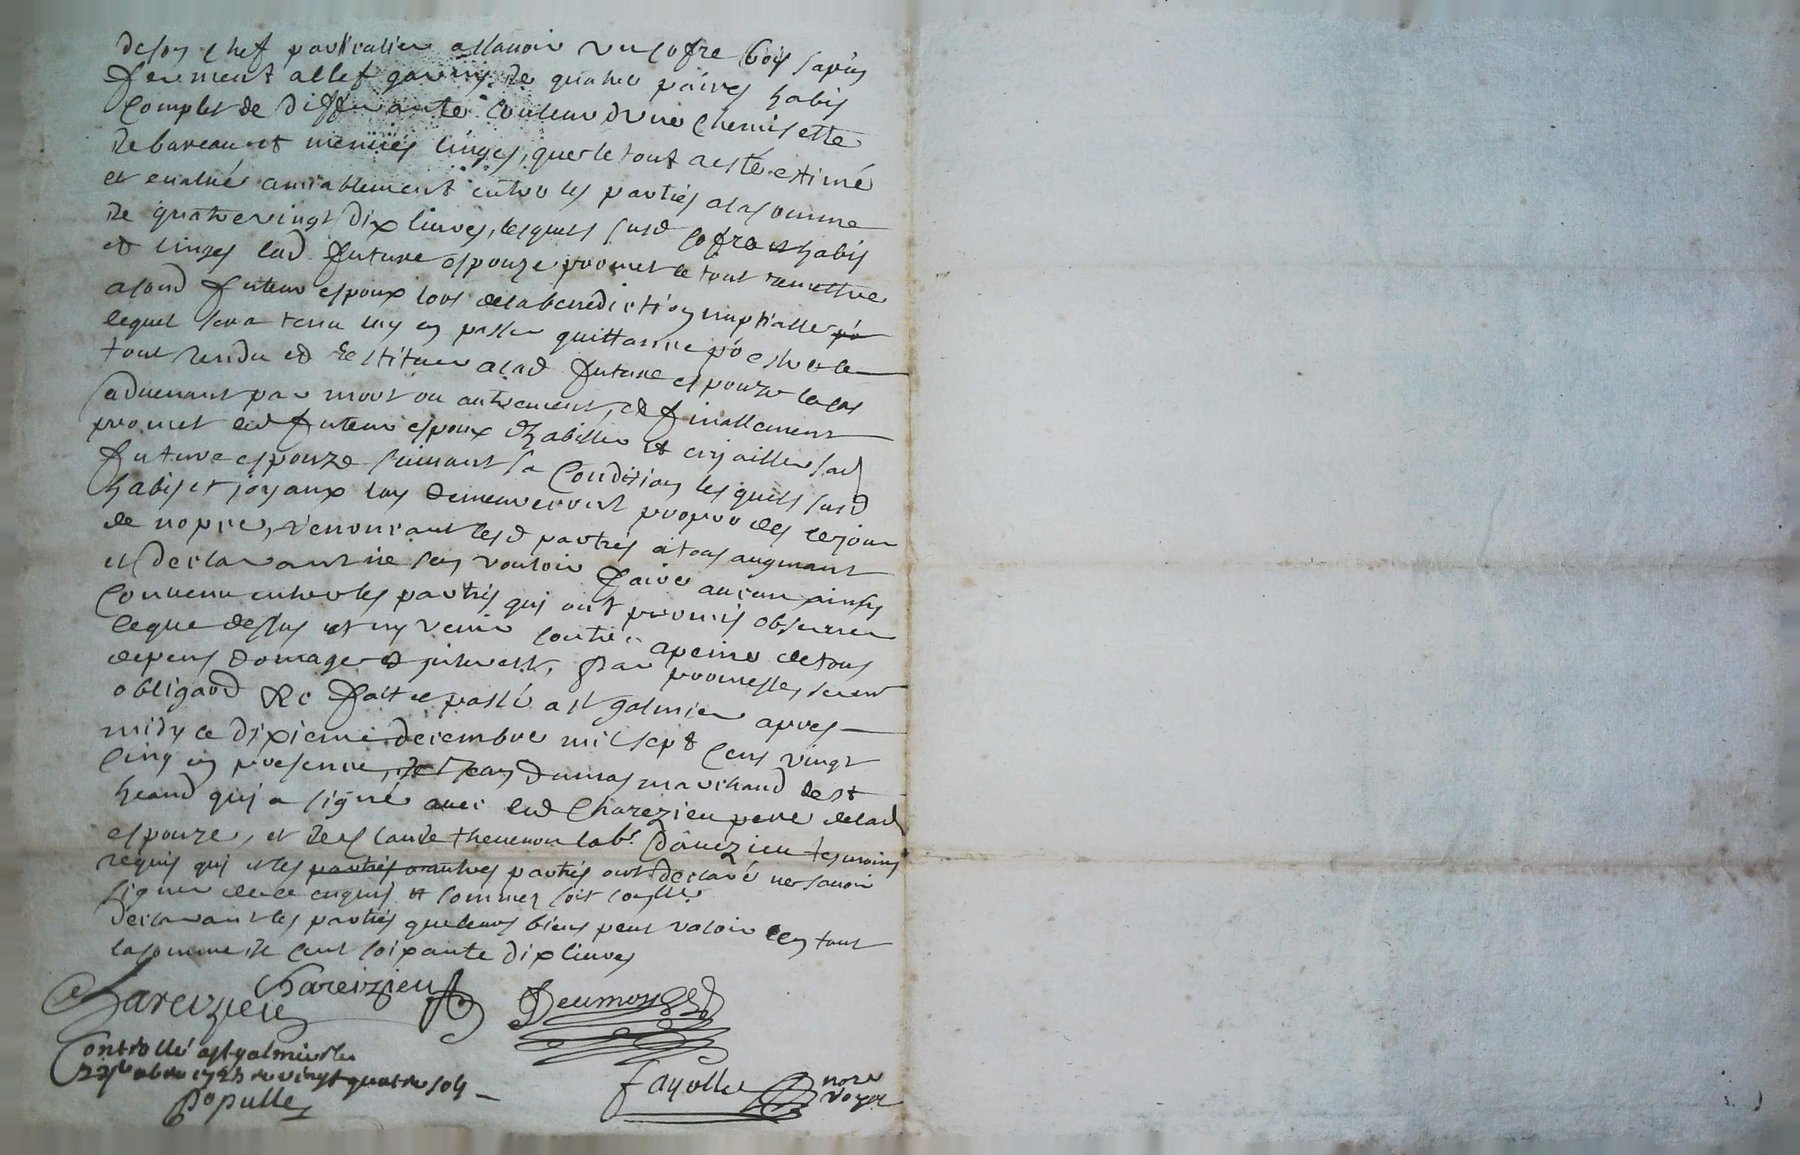 de son chef particulier assavoir un cofre bois sapin
ferment a clef garny de quatre paires habis
complet de differante couleur d'une chemisette
de bureau et menües linges, que le tout a esté estimé
et evalué amiablement entre les parties a la somme
de quatre vingt dix livres, lesquels susd cofre et habis
et linges lad future espouze promet le tout remettre
a sond futeur espoux lors de la benediction nuptialle po
lequel sera tenu luy en passer quittance po estre le
tout rendu et restituer a lad future espouze le cas
advenant par mort ou autrement, et finallement
promet led futeur espoux d'habiller et enjailler sad
future espouze suivant sa condition lesquels susd
habis et joyaux luy demeureront propre des ce jour
de nopce, renoncant lesd parties a tous augmant
et declarant ne sen vouloir faire aucun ainsy
convenu entre les parties qui ont promis observer
ce que dessus et ny venir contre a peine de tous
depens domage et jnterest, par promesses serm
obligaõd &c fait et passé a st galmier apres
midy ce dixieme decembre mil sept cens vingt
cinq en presence, de Jean Dumas marchand de st
heand qui a signé avec led Chareizieu pere de lad
espouze, et de Claude thevenon lab.r d'avezieu tesmoins
requis qui et les parties autres parties ont declaré ne savoir
signer de ce enquis et sommez soit
declarant les parties que leurs biens peut valoir en tout
la somme de cent soixante dix livres
Chareizieu Chareizieu Deumas
Controllé a st galmier le
xbre 1725 vingt quatre sols
Populle
fayolle nore
royal